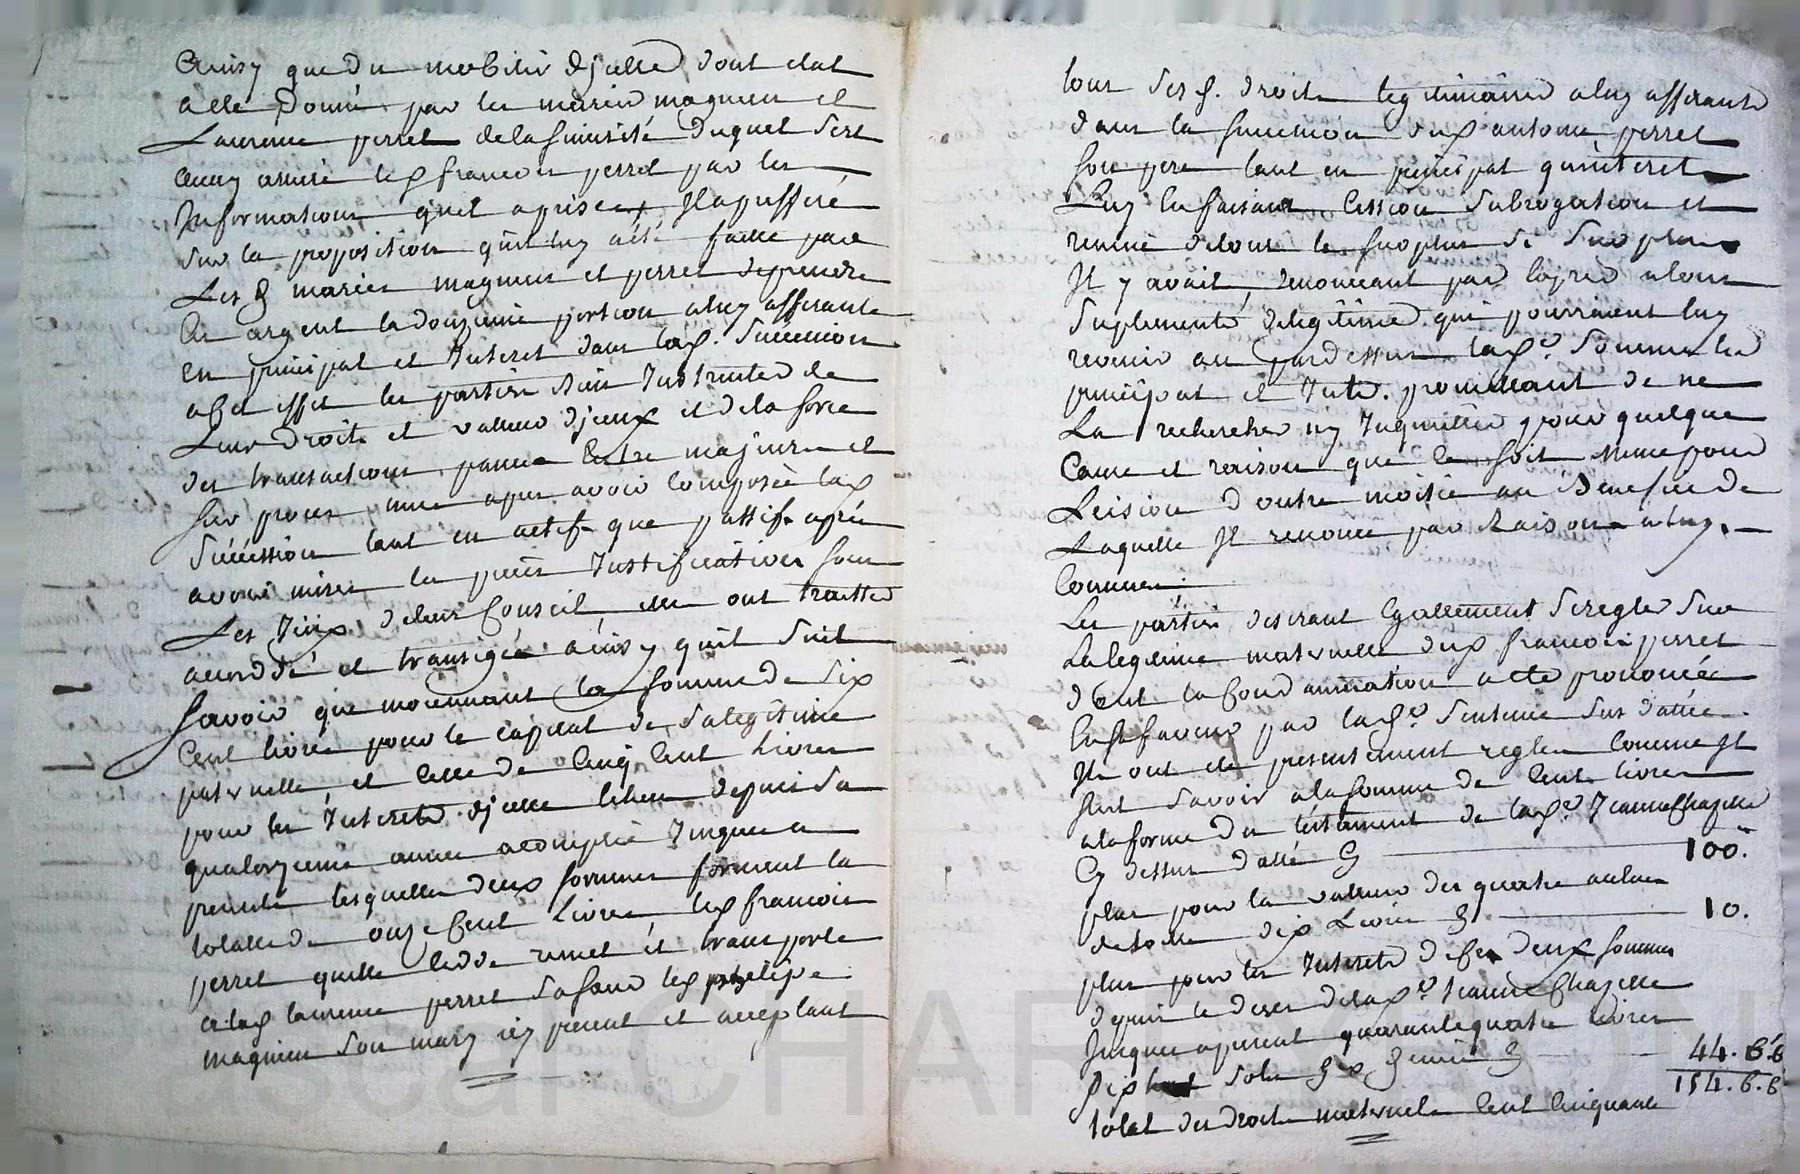 Ainsy que du mobilier d'jcelle dont etat
a eté Donné par les mariés magnien et
Laurence perret de la sincerité duquel s'est
ausy assuré led françois perret par les
Informations qu'il a prises, Il a
sur la proposition qui luy a été faitte par
Les d mariés magnien et perret de prendre
En argent la douzieme portion a luy afferante
en principal et Interet dans lad. Succession
a cet effet les parties bien Instruites de
Leurs Droits et valleur d'jceux et de la force
des transactions passées Entre majeurs et
sur procès, meme apres avoir Composée lad
Succession tant en actif que passif apres
avoir mises les pieces Justificatives sous
Les yeux de leur Conseil, elles ont traitté
accordé et transigée ainsy qu'il suit
Savoir que moiennant la somme de six
Cent livres pour le capital de sa legitime
paternelle, et celle de Cinq Cent Livres
pour les Interets d'jcelle Echus depuis sa
quatorzieme année accomplie Jusques a
present lesquelles deux sommes forment la
totalle de onze Cent Livres led francois
perret quitte cedde remet et transporte
a lad laurence perret sa soeur led philipe
magnien son mary icy present et acceptant
tous ses d. droits legitimaires a luy afferants
dans la succession dud antoine perret
son pere tant en principal qu'interets
Luy En faisant Cession Subrogation et
remise de tout le surplus si surplus
Il y avait, renonceant par Exprès a tous
Supléments de legitime qui pourroient luy
revenir au pardessus lad.e Somme En
principal et Intets. promettant de ne
La rechercher ny Inquietter pour quelque
Cause et raison que ce soit meme pour
Lesion d'outre moitié au Benefice de
Laquelle Il renonce par Raison a luy
Connues;
Les parties desirant Egallement se regler sur
La legitime maternelle dud francois perret
dont la Condamnation a eté prononcée
En sa faveur par lad.e Sentence sus dattée
Ils ont eté presentement reglés Comme Il
suit Savoir a la somme de Cent Livres
a la forme du testament de lad.e Jeanne Chapelle
Cy dessus datté Cy 100.
plus pour la valleur des quatre aulnes
de toille dix Livres Cy 10.
plus pour les Interets de ces deux sommes
depuis le deces de lad.e Jeanne Chapelle
Jusques a present quarante quatre livres
six sols six deniers Cy 44. 6. 6
154. 6. 6
total des droits maternels Cent Cinquante